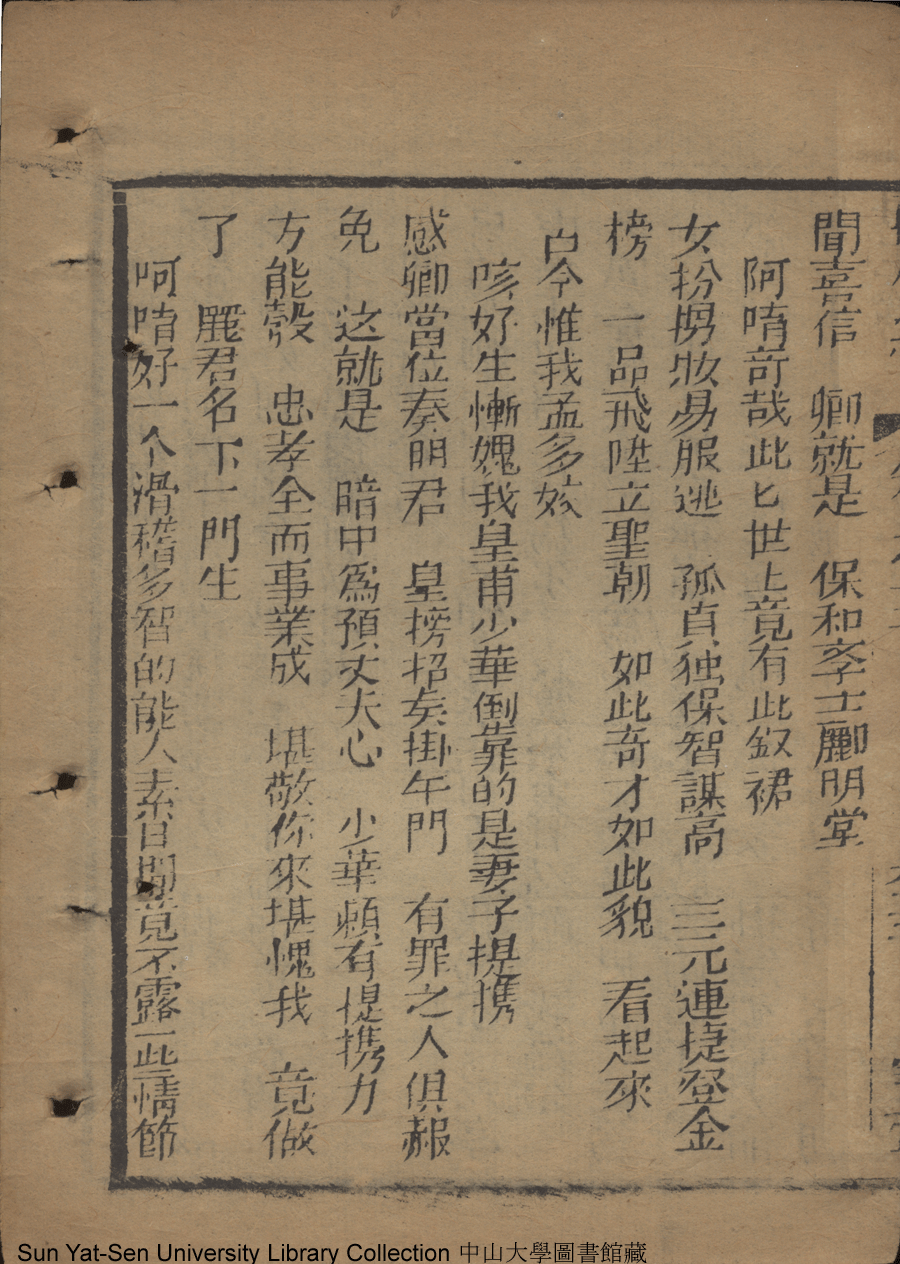 聞喜信　卿就是　保和李士酈明堂
阿唷竒哉此匕世上竟有此釵裙
女扮男妝易服逃　孤貞独保智謀高　三元連捷登金
榜　一品飛陞立聖朝　如此奇才如此貌　看起來
古今惟我孟多姣
咳好生慚媿我皇甫少華倒靠的是妻子提携
感卿當位奏明君　皇榜招矣掛午門　有罪之人俱赧
免　这就是　暗中爲預丈夫心　少華頼有提携力
方能彀　忠孝全而事業成　堪敬你來堪愧我　竟做
了　麗君名下一門生
呵唷好一个滑稽多智的能人素日間竟不露一些情節
Sun Yat-Sen University Library Collection 中山大學圖書館藏